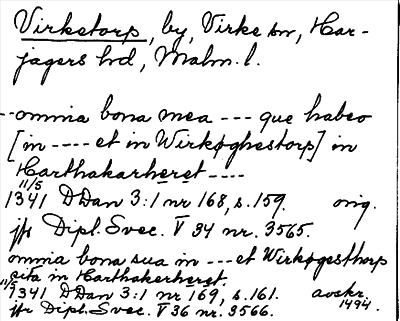 Virkstorp, by, Virke sn, Har-
jagers hd, Malm. l.
--omnia bona mea --- que habeo
[in ---- et in Wirkøghestorp] in
Harthakarheret ----
11/5
1341 DDan 3:1 nr 168, s. 159. orig.
jfr Dipl. Svec. V 34 nr. 3565.
omnia bona sua in --- et Wirkøgesthorp
sita in Harthakerheret.
11/5 1341 DDan 3:1 nr 169, s. 161. avskr. 1494.
jfr Dipl. Svec. V 36 nr. 3566.